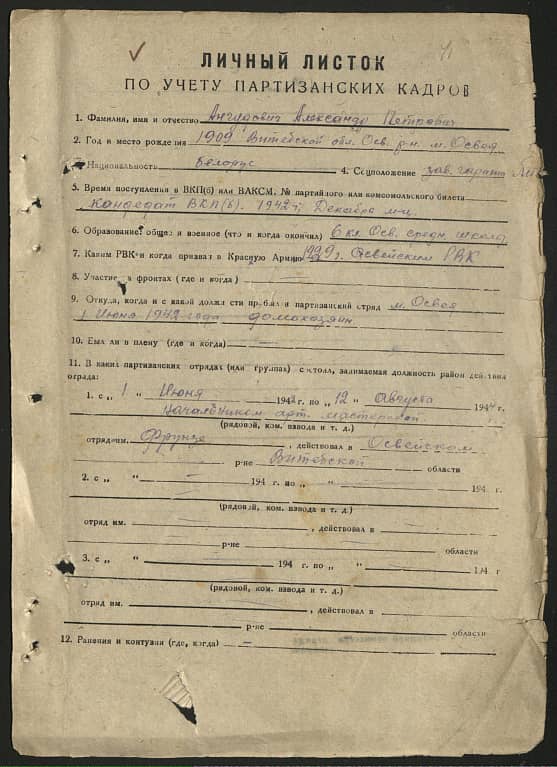 ЛИЧНЫЙ ЛИСТОК
ПО УЧЕТУ ПАРТИЗАНСКИХ КАДРОВ
1. Фамилия, имя и отчество Александр Петрович
2. Год и место рождения 1909 Витебской обл. Осв. р-н. м. Освея
Национальность белорус 4. Соцположение зав. гаража
5. Время поступления в ВКП(б) или ВЛКСМ, № партийного или комсомольского билета
кандедат ВКП(б). 1942 г. Декабрь м-ц.
6. Образование: общее и военное (что и когда окончил) 6 кл. Осв. средн. школа
7. Каким РВК и когда призван в Красную Армию Освейским РВК
8. Участие в фронтах (где и когда) —
9. Откуда, когда и с какой должности прибыл в партизанский отряд м. Освея
1 Июня 1942 года домохозяин
10. Был ли в плену (где и когда) —
11. В каких партизанских отрядах (или группах) состоял, занимаемая должность район действия
отряда:
1. с „ 1 “ Июня 1942 г. по „ 12 “ Августа 1944 г.
начальником арт. мастерской
(рядовой, ком. взвода и т. д.)
отряд им. Фрунзе, действовал в Освейском
р-не Витебской области
2. с „ “ 194 г. по „ “ 194 г.
(рядовой, ком. взвода и т. д.)
отряд им. , действовал в
р-не области
3. с „ “ 194 г. по „ “ 194 г.
(рядовой, ком. взвода и т. д.)
отряд им. , действовал в
р-не области
12. Ранения и контузии (где, когда) —